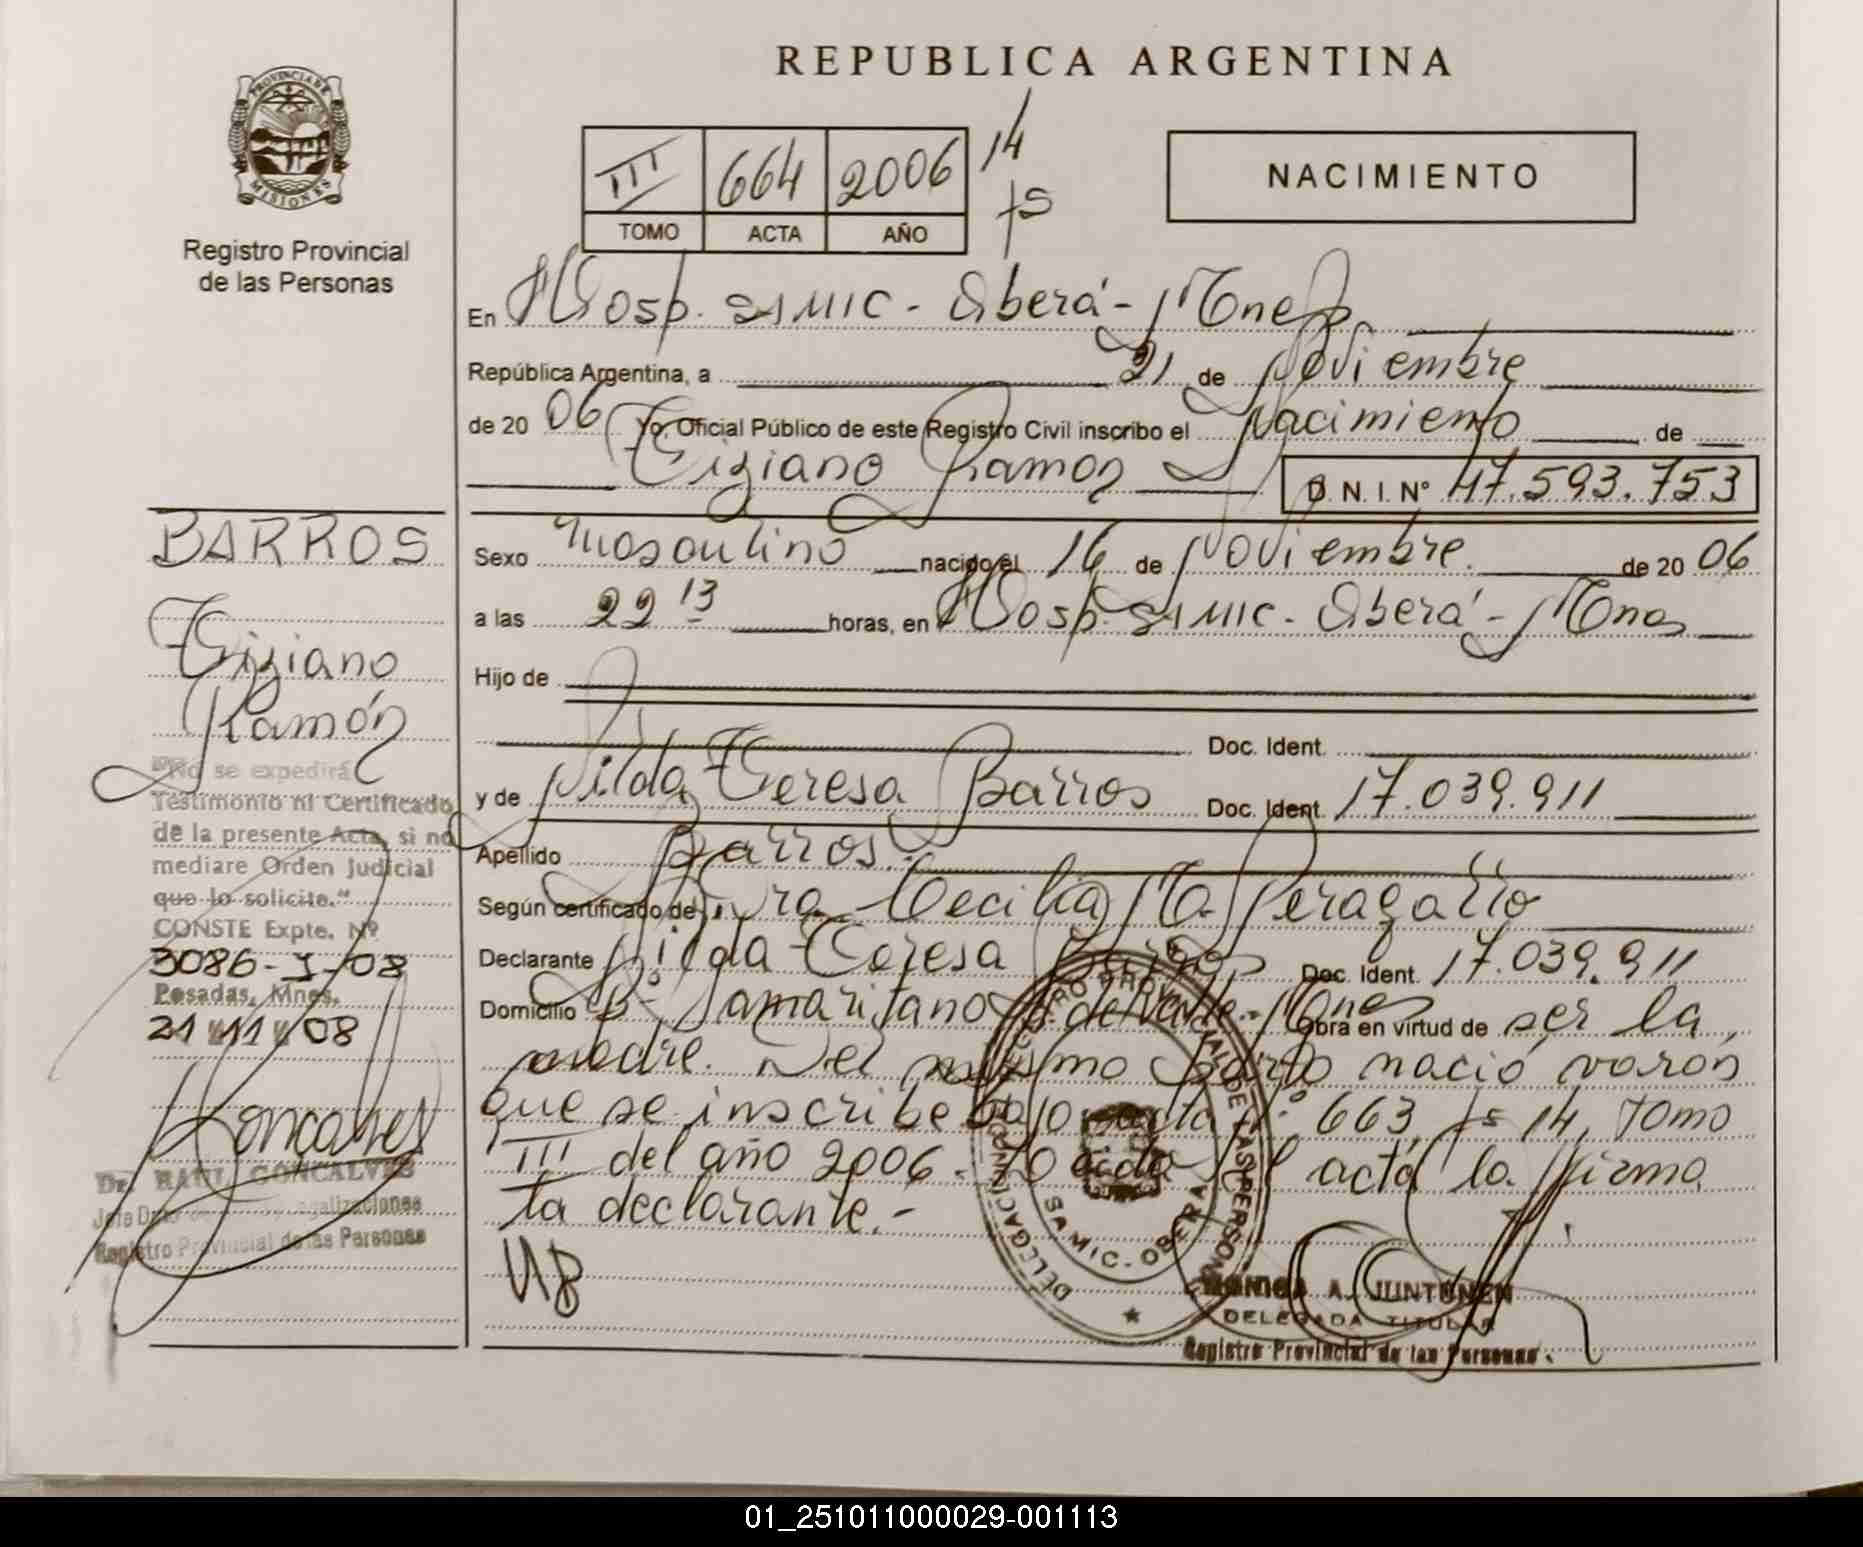 REPUBLICA ARGENTINA
PROVINCIA DE
MISIONES
Registro Provincial
de las Personas
III 664 2006 14
TOMO ACTA AÑO fs
NACIMIENTO
En Hosp. SAMIC - Oberá - Mnes
República Argentina, a 21 de Noviembre
de 20 06 Yo, Oficial Público de este Registro Civil inscribo el Nacimiento de
Tiziano Ramon D. N. I. N° 47.593.753
Sexo Masculino nacido el 16 de Noviembre. de 20 06
a las 22 13 horas, en Hosp. SAMIC - Oberá - Mnes
Hijo de
Doc. Ident.
y de Nilda Teresa Barros Doc. Ident. 17.039.911
Apellido Barros.
Según certificado de Dra Cecilia M. Peragallo
Declarante Nilda Teresa Barros Doc. Ident. 17.039.911
Domicilio B° Samaritano A. del Valle - Mnes Obra en virtud de ser la
madre. Del mismo parto nació varón
que se inscribe bajo acta N° 663, fs 14, Tomo
III del año 2006. Leida el acta la firma
la declarante.-
NB
BARROS
Tiziano
Ramón
"No se expedirá
Testimonio ni Certificado
de la presente Acta, si no
mediare Orden Judicial
que lo solicite."
CONSTE Expte. Nº
3086-J-08
Posadas, Mnes.
21 11 08
Goncalves
Dr. RAUL GONCALVES
Jefe Dpto Legalizaciones
Registro Provincial de las Personas
REGISTRO PROVINCIAL DE LAS PERSONAS
DELEGACION
SAMIC - OBERA
MONICA A. JUNTUNEN
DELEGADA TITULAR
Registro Provincial de las Personas
01_251011000029-001113